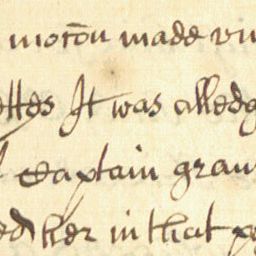 motōn made
ttes It was alledg
Captain gran
ed her in that